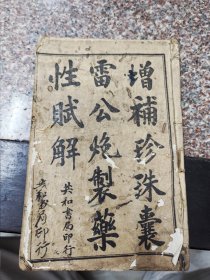 增補珍珠囊
雷公炮製藥
性賦解
共和書局印行
共和書局印行